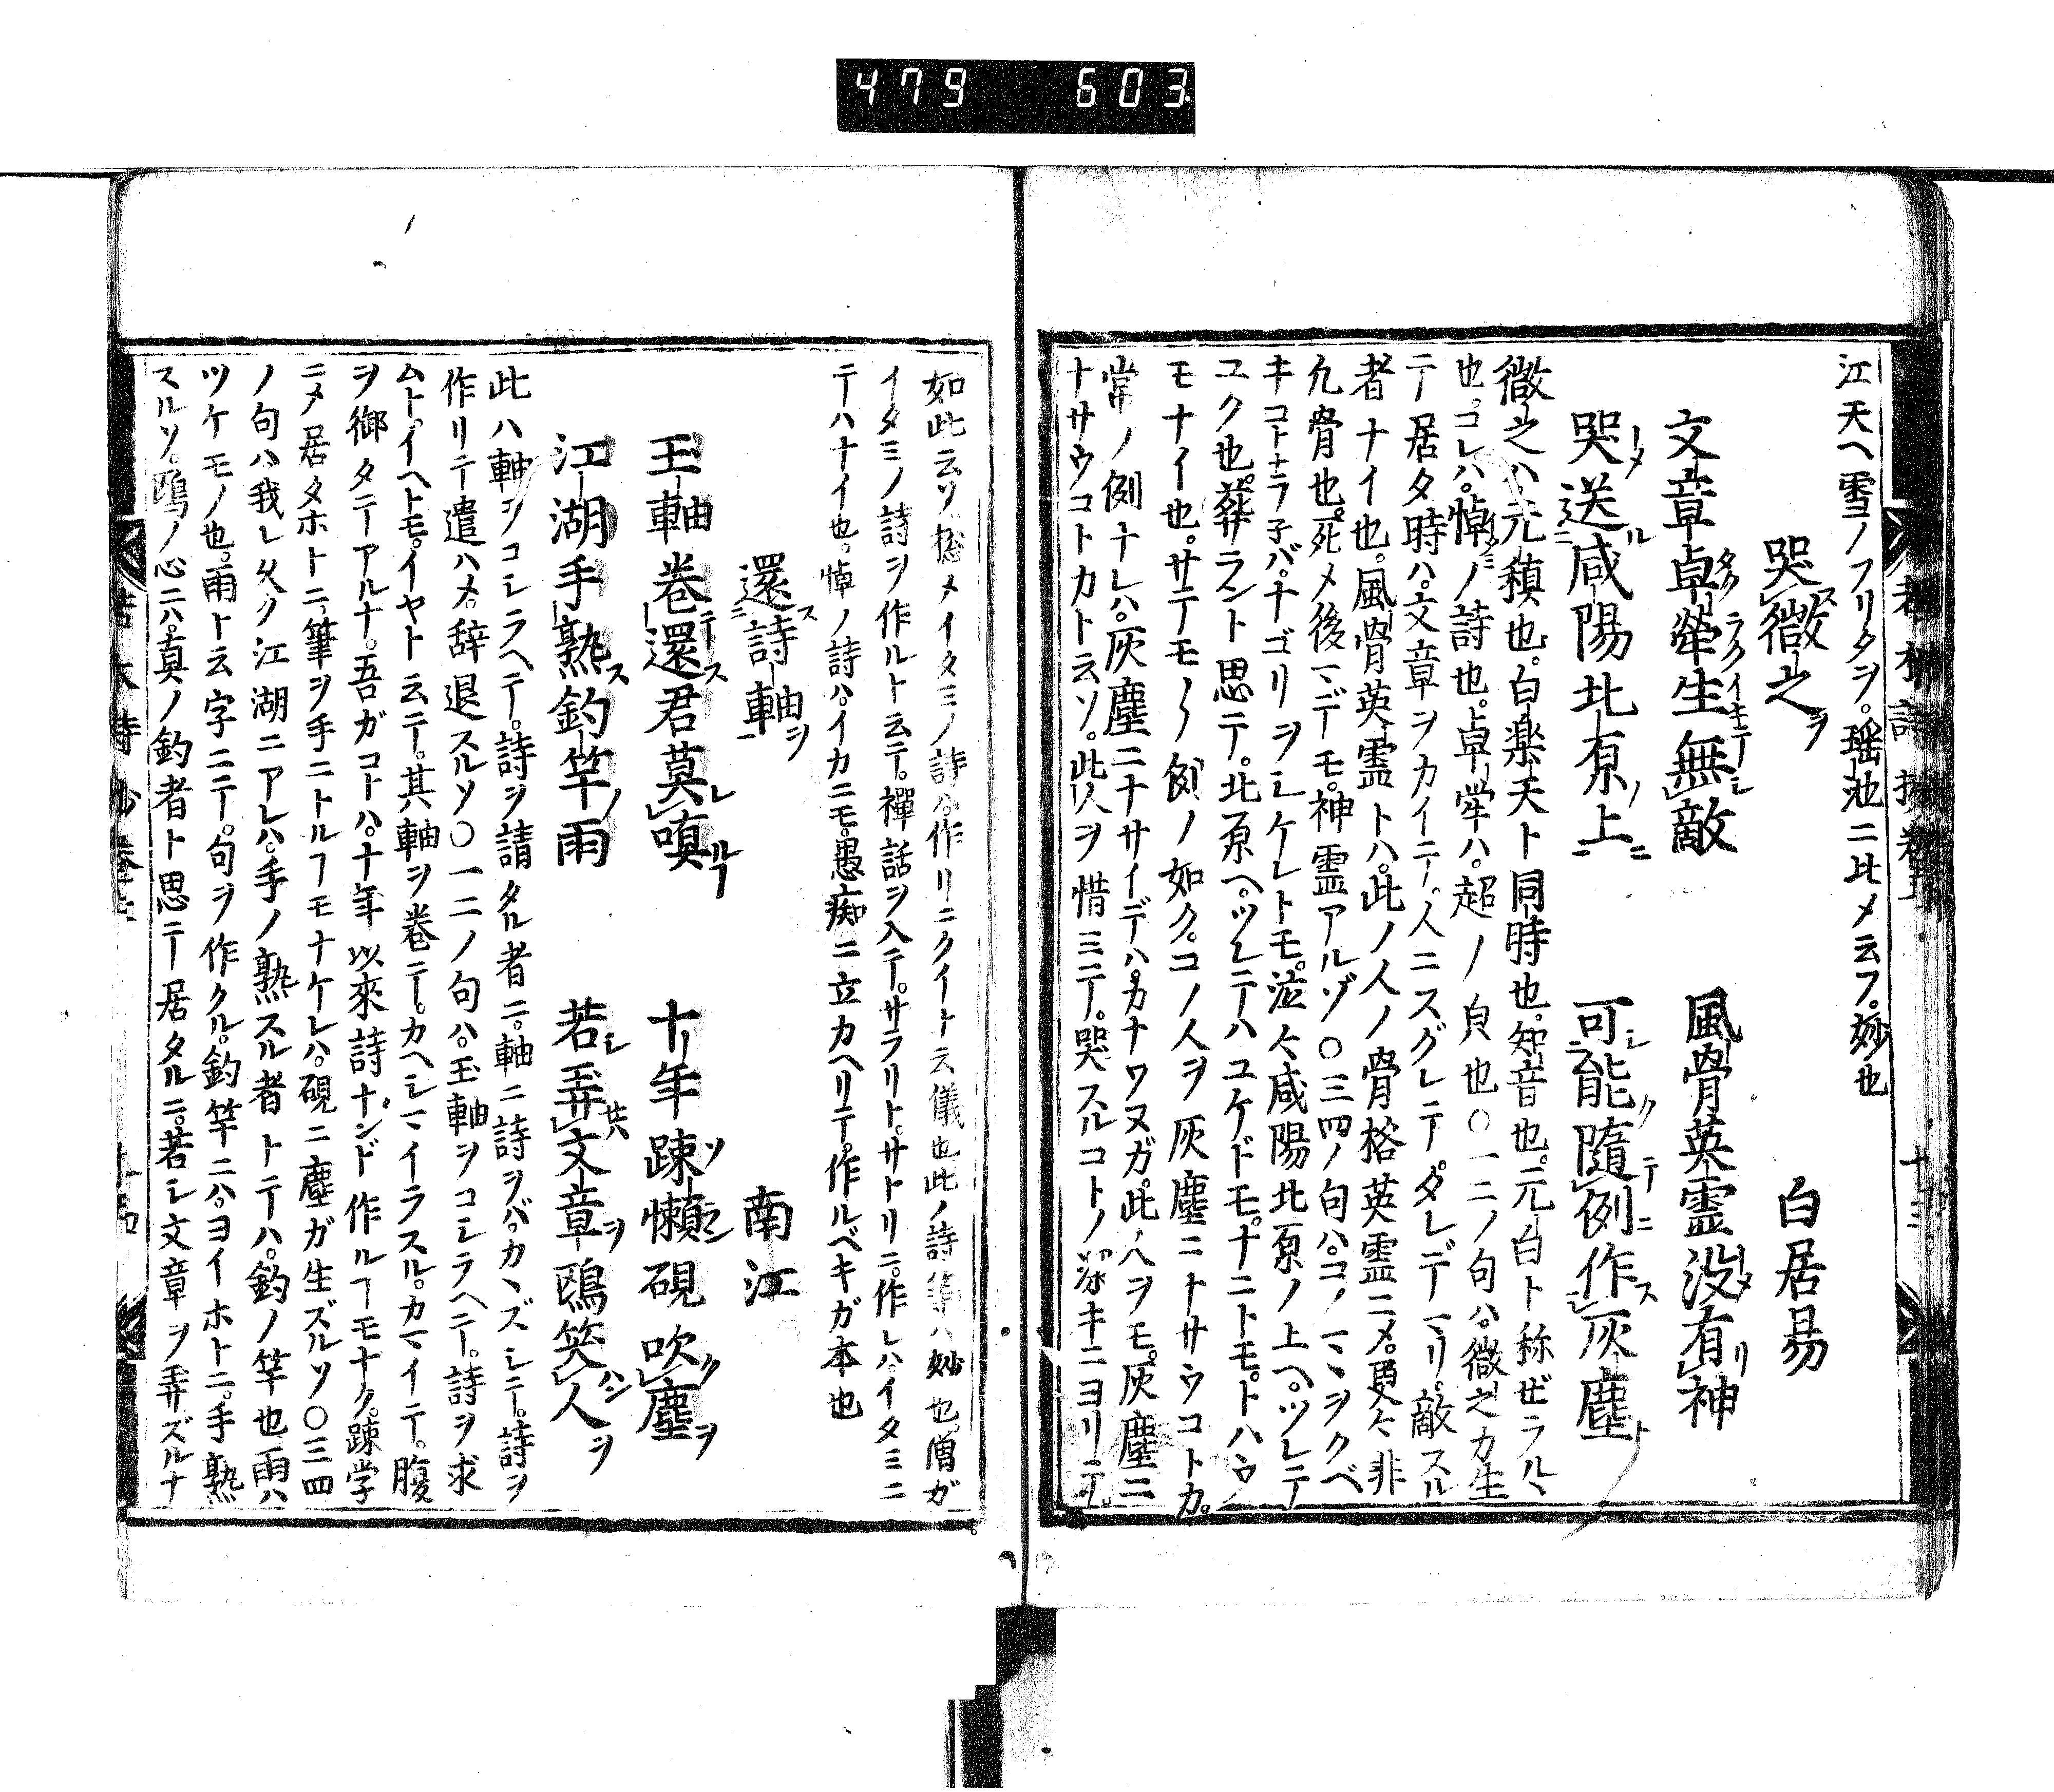 479 603
江天ヘ雪ノフリタヲ。瑶池ニ比メ云フ。妙也
哭微之ヲ 白居易
文章卓犖生無敵 風骨英霊没有神
哭送咸陽北原上 可能隨例作灰塵
微之ハ元稹也。白楽天ト同時也。知音也。元白ト称ゼラルヽ
也。コレハ。悼ノ詩也。卓犖ハ。超ノ皃也〇一二ノ句ハ。微之カ生
テ居タ時ハ。文章ヲカイテ。人ニスグレテ。タレデマリ。敵スル
者ナイ也。風骨英霊トハ。此ノ人ノ骨格英霊ニメ。更々非
凡骨也。死メ後マデモ。神霊アルゾ〇三四ノ句ハ。コノマヽヲクベ
キコトナラ子バ。ナゴリヲシケレトモ。泣々咸陽北原ノ上ヘ。ツレテ
ユク也。葬ラント思テ。北原ヘ。ツレテハユケドモ。ナニトモ。トハウ
モナイ也。サテモ〳〵例ノ如ク。コノ人ヲ灰塵ニナサウコトカ。
常ノ例ナレハ。灰塵ニナサイデハ。カナワヌガ。此人ヲモ。灰塵ニ
ナサウコトカト云ソ。此人ヲ惜ミテ。哭スルコトノ深キニヨリテ。
如此云ソ。捴メイタミノ詩ハ。作リニクイト云儀也此ノ詩第ハ妙也。僧ガ
イタミノ詩ヲ作ルト云テ。禪話ヲ入テ。サラリト。サトリニ。作レハ。イタミニ
テハナイ也。悼ノ詩ハ。イカニモ。愚痴ニ立カヘリテ。作ルベキガ本也
還詩軸ヲ 南江
玉軸卷還君莫嗔 十年踈懶硯吹塵
江湖手熟釣竿雨 若弄文章鴎笑人
此ハ軸ヲコシラヘテ。詩ヲ請タル者ニ。軸ニ詩ヲバ。カヽズシテ。詩ヲ
作リテ遣ハメ。辞退スルソ〇一二ノ句ハ。玉軸ヲコシラヘテ。詩ヲ求
ムト。イヘトモ。イヤト云テ。其軸ヲ卷テ。カヘシマイラスル。カマイテ。腹
ヲ御タテアルナ。吾ガコトハ。十年以來詩ナンド作ルヿモナク。踈学
ニメ居タホトニ。筆ヲ手ニトルヿモナケレハ。硯ニ塵ガ生ズルソ〇三四
ノ句ハ我レ久ク江湖ニアレハ。手ノ熟スル者トテハ。釣ノ竿也雨ハ
ツケモノ也。雨ト云字ニテ。句ヲ作クル。釣竿ニハ。ヨイホトニ。手熟
スルソ。鴎ノ心ニハ。真ノ釣者ト思テ居タルニ。若シ文章ヲ弄ズルナ